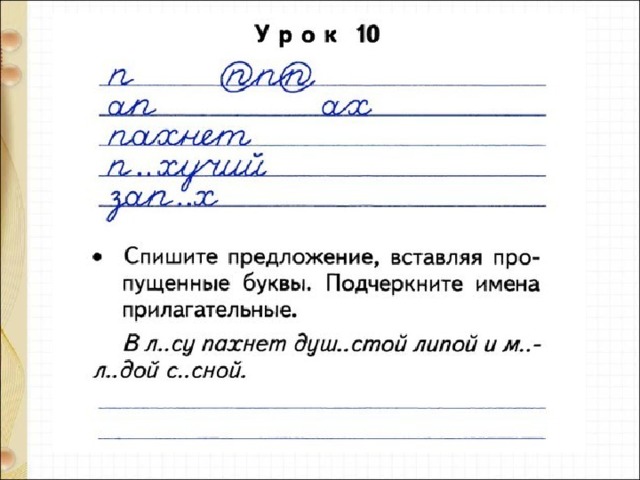 Урок 10
п п п п
ап ах
пахнет
п..хучий
зап..х
• Спишите предложение, вставляя про-
пущенные буквы. Подчеркните имена
прилагательные.
В л..су пахнет душ..стой липой и м..-
л..дой с..сной.